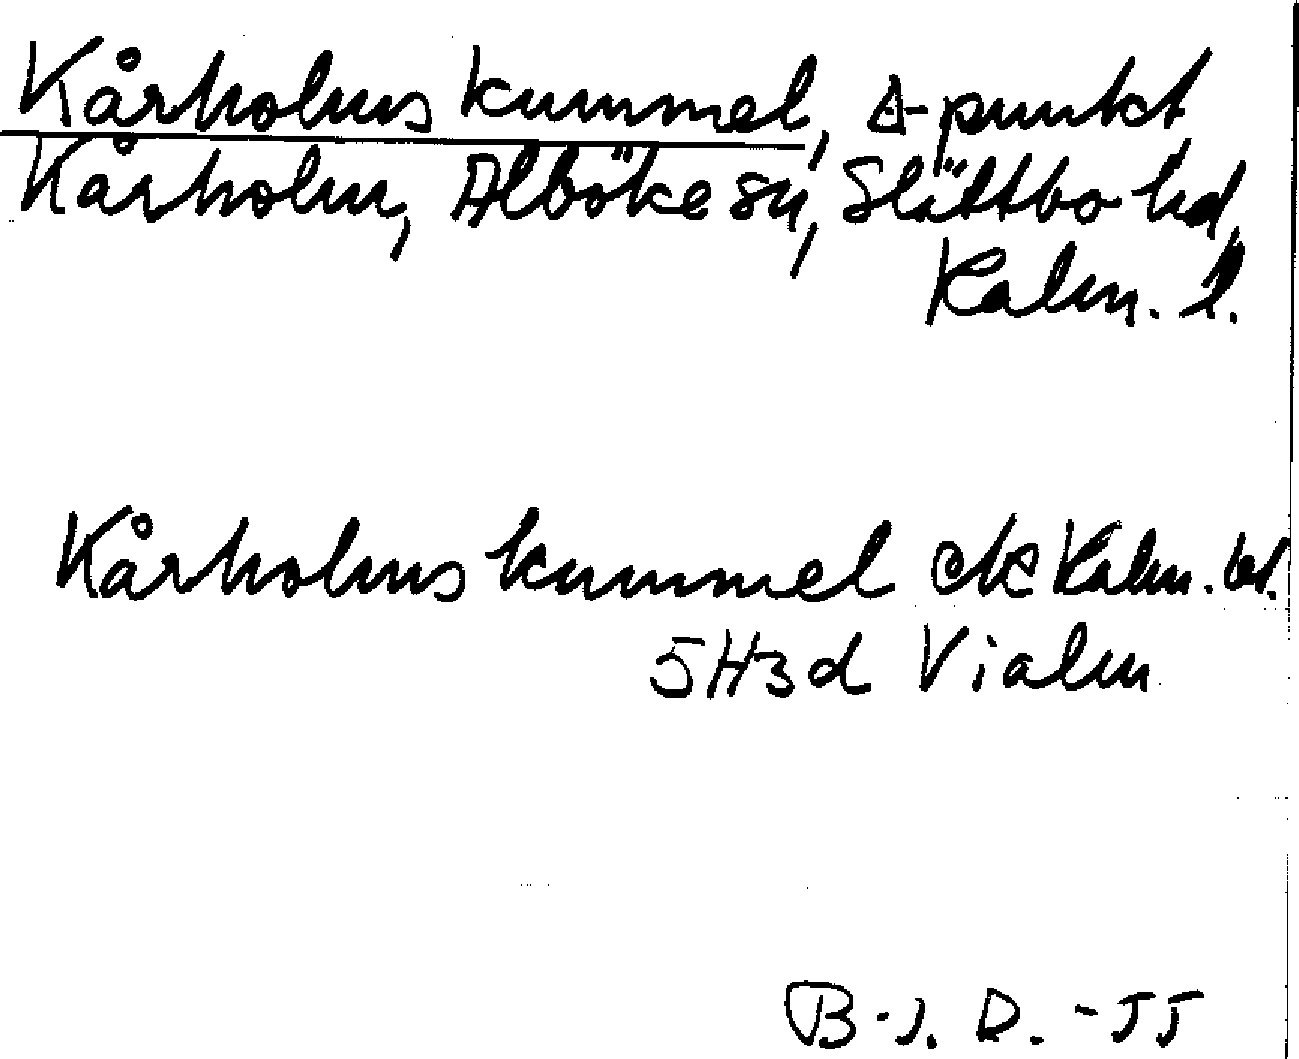 Kårholms kummel, Δ-punkt,
Kårholm, Alböke sn, Slättbo hd,
Kalm. l.
Kårholms kummel ek Kalm. bl.
5H3d Vialm
B-J. D. -55